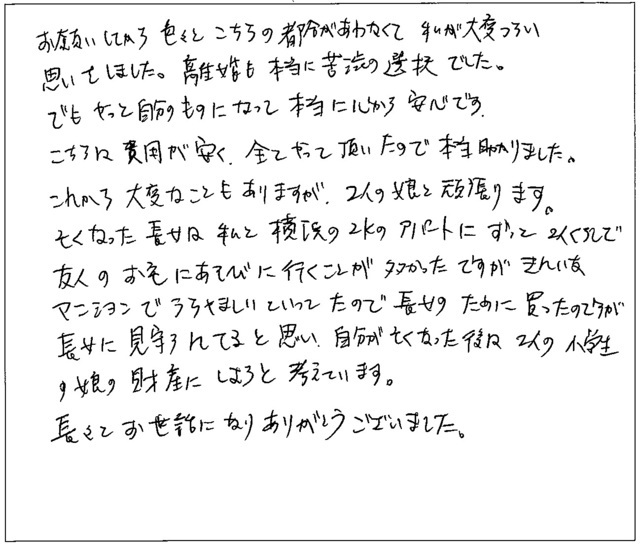 お願いしてから色々とこちらの都合があわなくて私が大変つらい
思いをしました。離婚も本当に苦渋の選択でした。
でもやっと自分のものになって本当に心から安心です。
こちらは費用が安く、全てやって頂いたので本当助かりました。
これから大変なこともありますが、2人の娘と頑張ります。
亡くなった長女は私と横浜の2Kのアパートにずっと2人くらしで
友人のお宅にあそびに行くことが多かったですがきれいな
マンションでうらやましいといってたので長女のために買ったのですが
長女に見守られてると思い、自分が亡くなった後は2人の小学生
の娘の財産にしようと考えています。
長々とお世話になりありがとうございました。